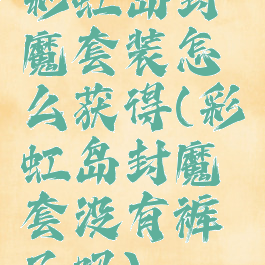 彩虹岛封
魔套装怎
么获得(彩
虹岛封魔
套没有裤